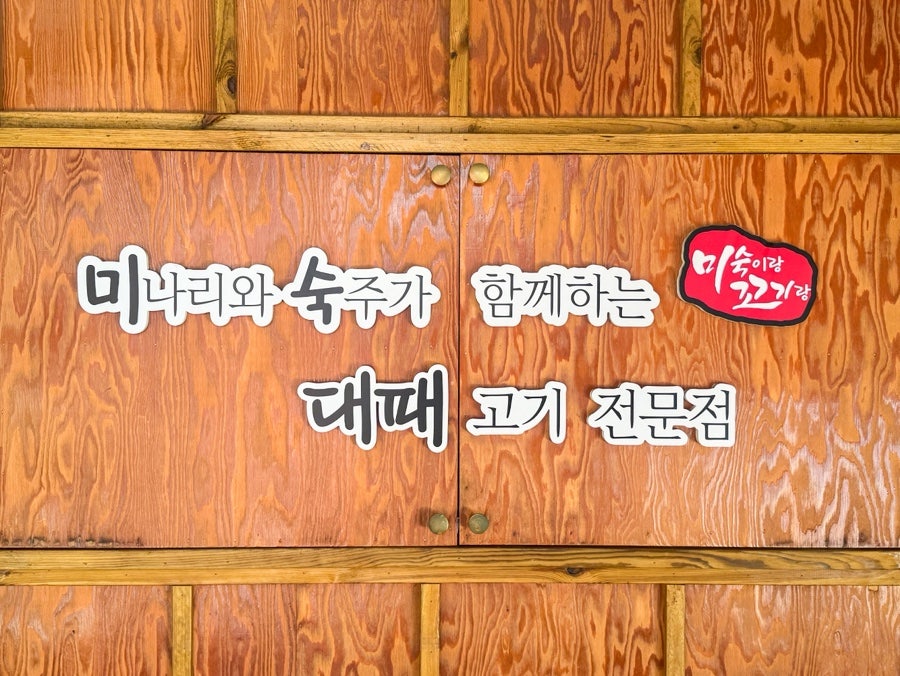 미나리와 숙주가 함께하는
미숙이랑
꼬기랑
대패 고기 전문점